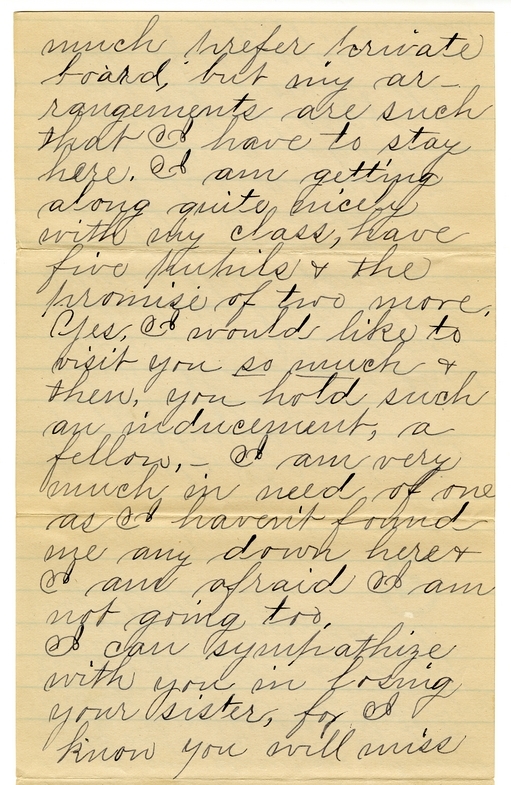 much prefer private
board, but my ar-
rangements are such
that I have to stay
here. I am getting
along quite nicely
with my class, have
five pupils & the
promise of two more.
Yes, I would like to
visit you so much &
then, you hold such
an inducement, a
fellow, - I am very
much in need of one
as I haven't found
me any down here &
I am afraid I am
not going too.
I can sympathize
with you in losing
your sister, for I
know you will miss